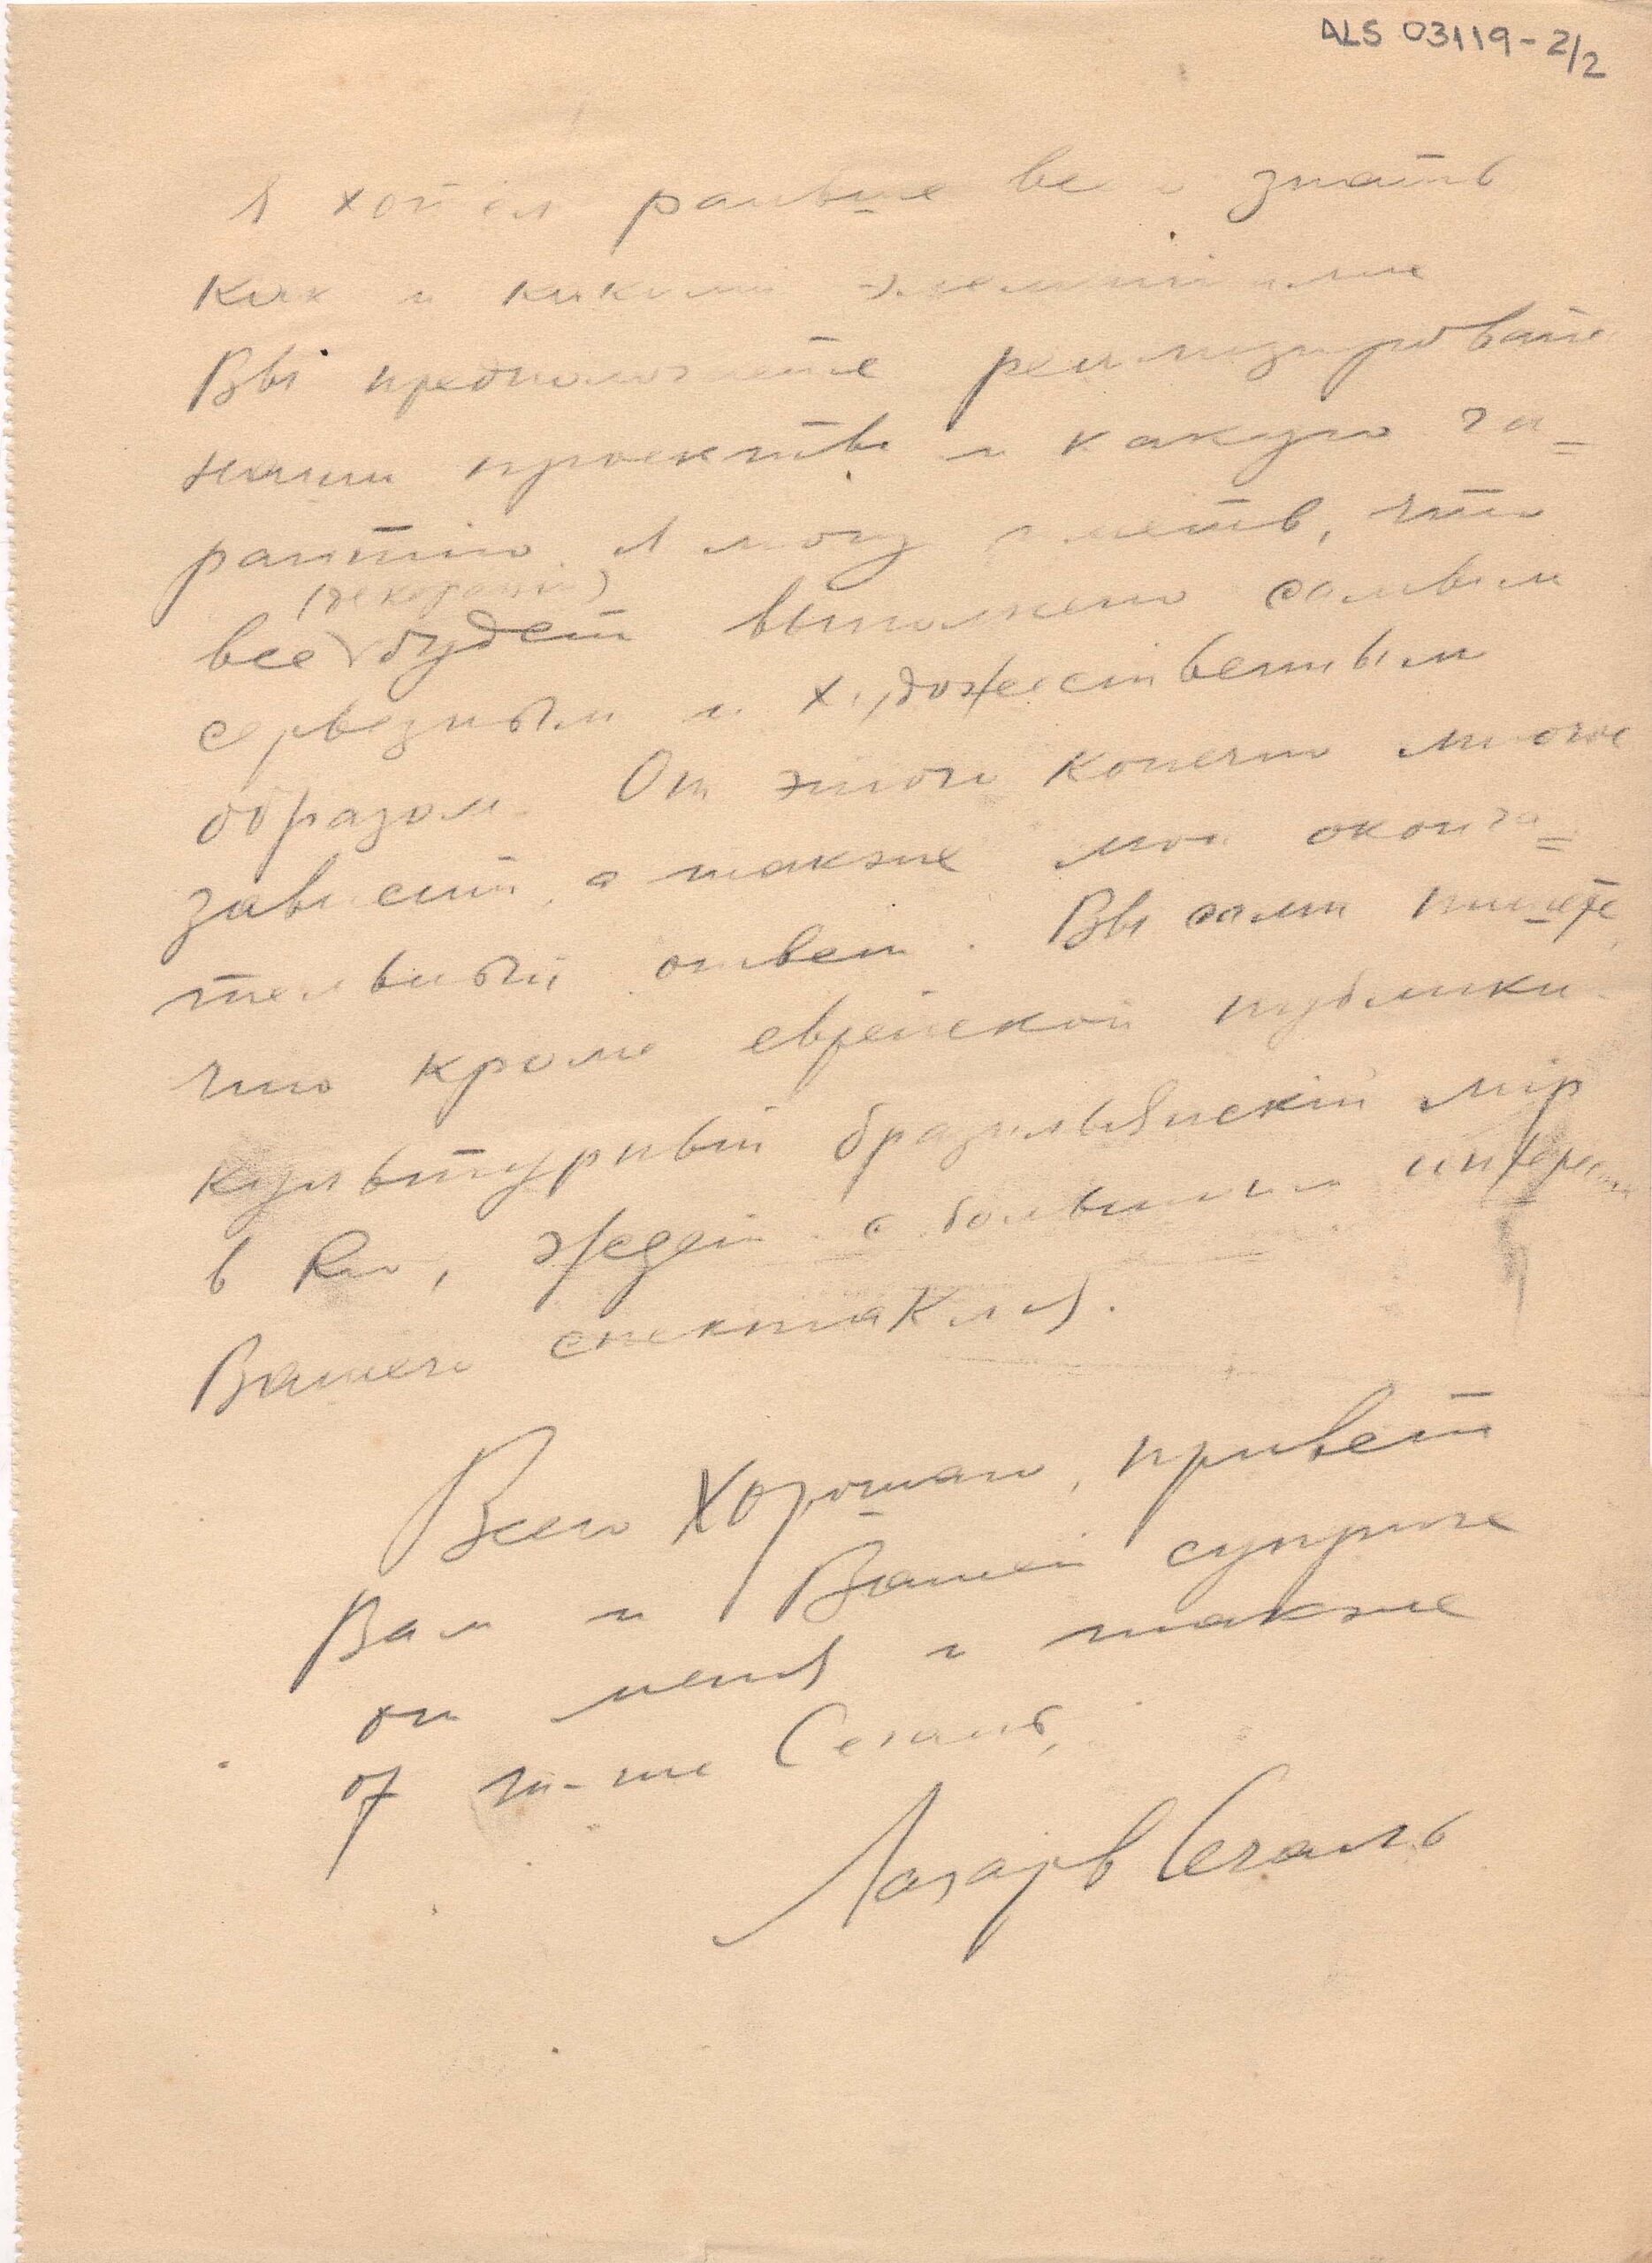 ALS 03119-2/2
Я хотел раньше всего знать
как и какими элементами
Вы предполагаете реализировать
наши проекты и какую га=
рантию я могу иметь, что
(декораций)
все будет выполнено самым
серьезным и художественным
образом. От этого конечно многое
зависит, а также мой оконча=
тельный ответ. Вы сами пишете,
что кроме еврейской публики
культурный бразильянскій мір
в Rio, ждет с большим интересом
Вашего спектакля.
Всего Хорошаго, привет
Вам и Вашей супруге
от меня и также
от г-жи Сегаль,
Лазарь Сегаль